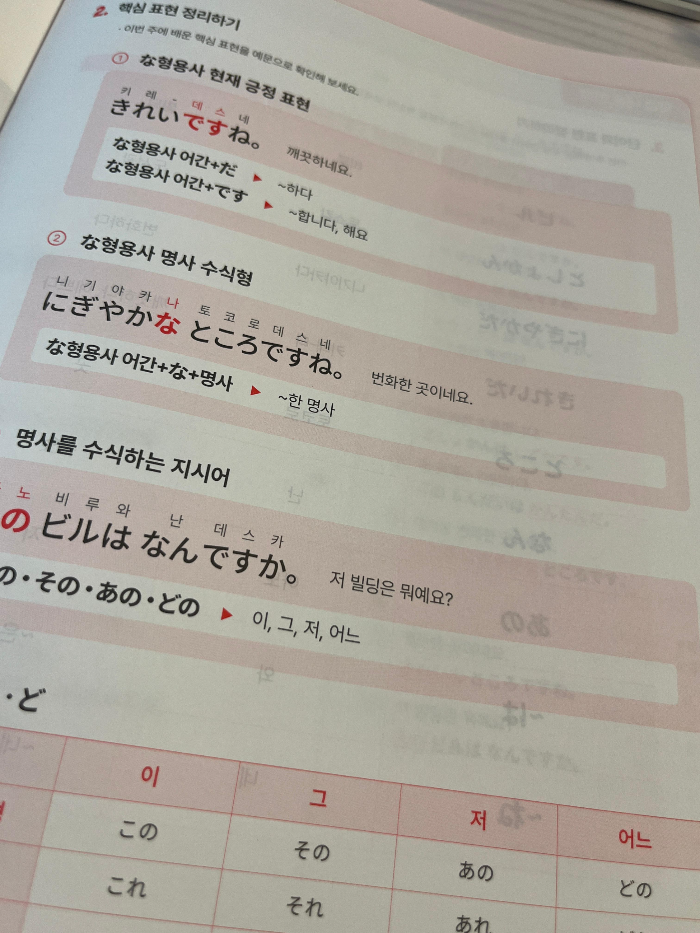 2. 핵심 표현 정리하기
· 이번 주에 배운 핵심 표현을 예문으로 확인해 보세요.
① な형용사 현재 긍정 표현
키 레 - 데 스 네
きれいですね。 깨끗하네요.
な형용사 어간+だ ▶ ~하다
な형용사 어간+です ▶ ~합니다, 해요
② な형용사 명사 수식형
니 기 야 카 나 토 코 로 데 스 네
にぎやかな ところですね。 번화한 곳이네요.
な형용사 어간+な+명사 ▶ ~한 명사
명사를 수식하는 지시어
노 비 루 와 난 데 스 카
の ビルは なんですか。 저 빌딩은 뭐예요?
の・その・あの・どの ▶ 이, 그, 저, 어느
・ど
이 그 저 어느
この その あの どの
これ それ あれ